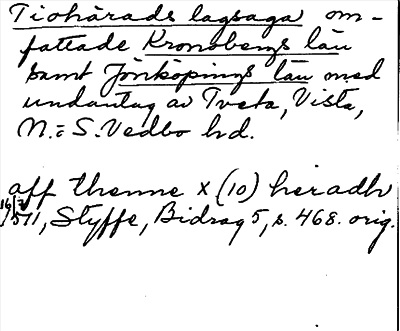 Tiohärads lagsaga om-
fattade Kronobergs län
samt Jönköpings län med
undantag av Tveta, Vista,
N.- S. Vedbo hd.
aff thenne x (10) heradh
16/2 1511, Styffe, Bidrag 5, s. 468. orig.